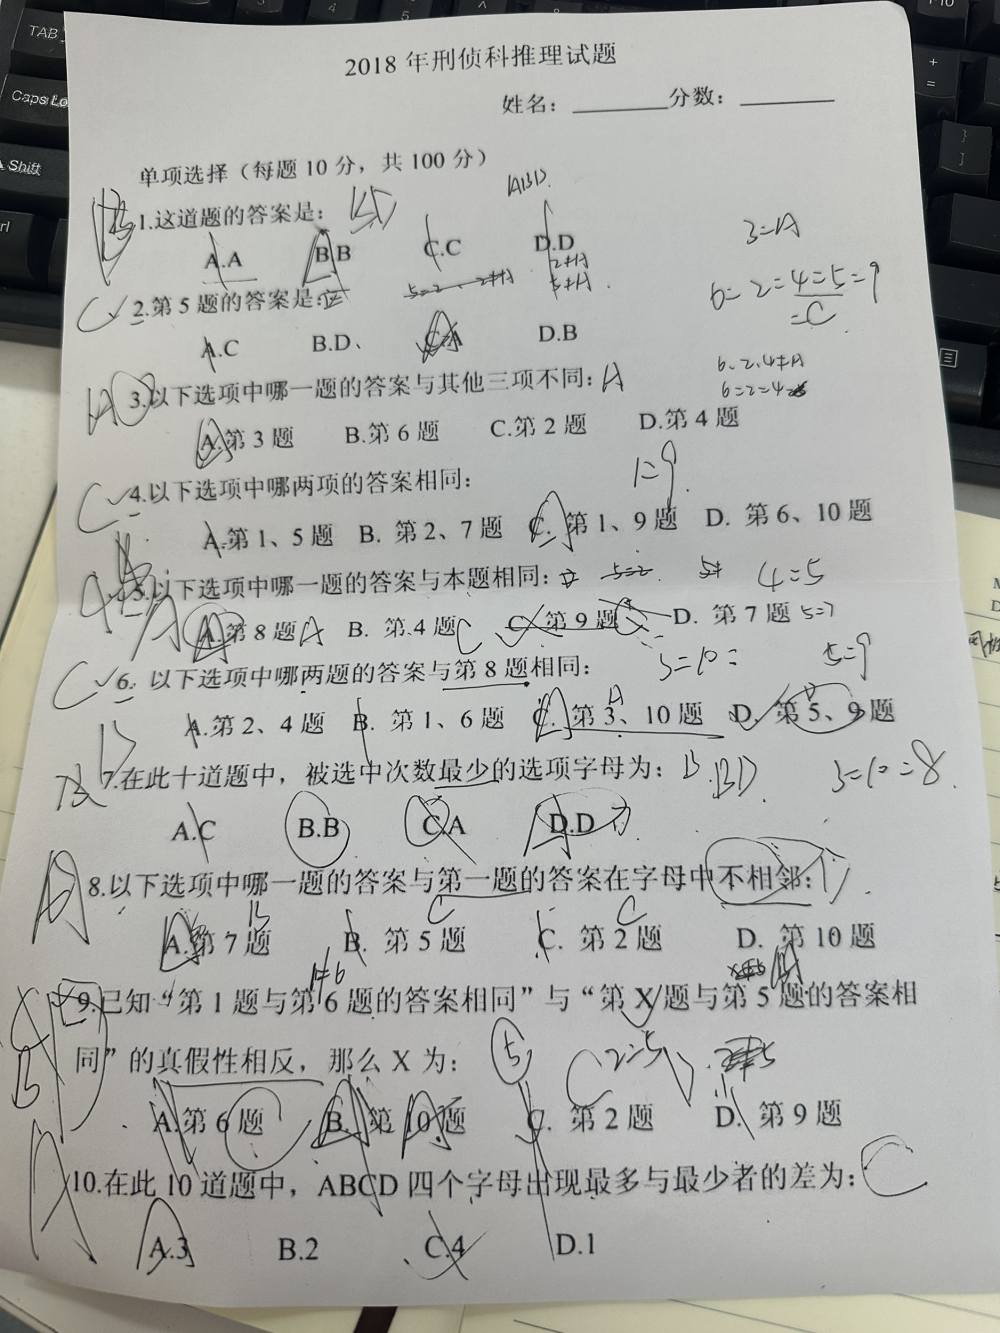 TAB
Caps Lo
Shift
2018 年刑侦科推理试题
姓名：________分数：________
单项选择（每题 10 分，共 100 分）
1.这道题的答案是：
A.A B.B C.C D.D
C 2.第 5 题的答案是：
A.C B.D D.B
3=A
6=2=4=5=9
=C
A 3.以下选项中哪一题的答案与其他三项不同：A
A.第 3 题 B.第 6 题 C.第 2 题 D.第 4 题
6、2、4≠A
C 4.以下选项中哪两项的答案相同：
1=9
A.第 1、5 题 B. 第 2、7 题 C. 第 1、9 题 D. 第 6、10 题
5.以下选项中哪一题的答案与本题相同：
4=5
A.第 8 题A B. 第.4 题C C. 第 9 题 D. 第 7 题 5=7
C 6. 以下选项中哪两题的答案与第 8 题相同：
3=10=
5=9
A.第 2、4 题 B. 第 1、6 题 C. 第 3、10 题 D. 第 5、9 题
B 7.在此十道题中，被选中次数最少的选项字母为：B .BD
3=10=8
A.C B.B C.A D.D
8.以下选项中哪一题的答案与第一题的答案在字母中不相邻：
A.第 7 题 B. 第 5 题 C. 第 2 题 D. 第 10 题
1≠6
9.已知“第 1 题与第 6 题的答案相同”与“第 X 题与第 5 题的答案相
同”的真假性相反，那么 X 为：
2=5
A.第 6 题 B. 第 10 题 C. 第 2 题 D. 第 9 题
10.在此 10 道题中，ABCD 四个字母出现最多与最少者的差为：C
A.3 B.2 C.4 D.1